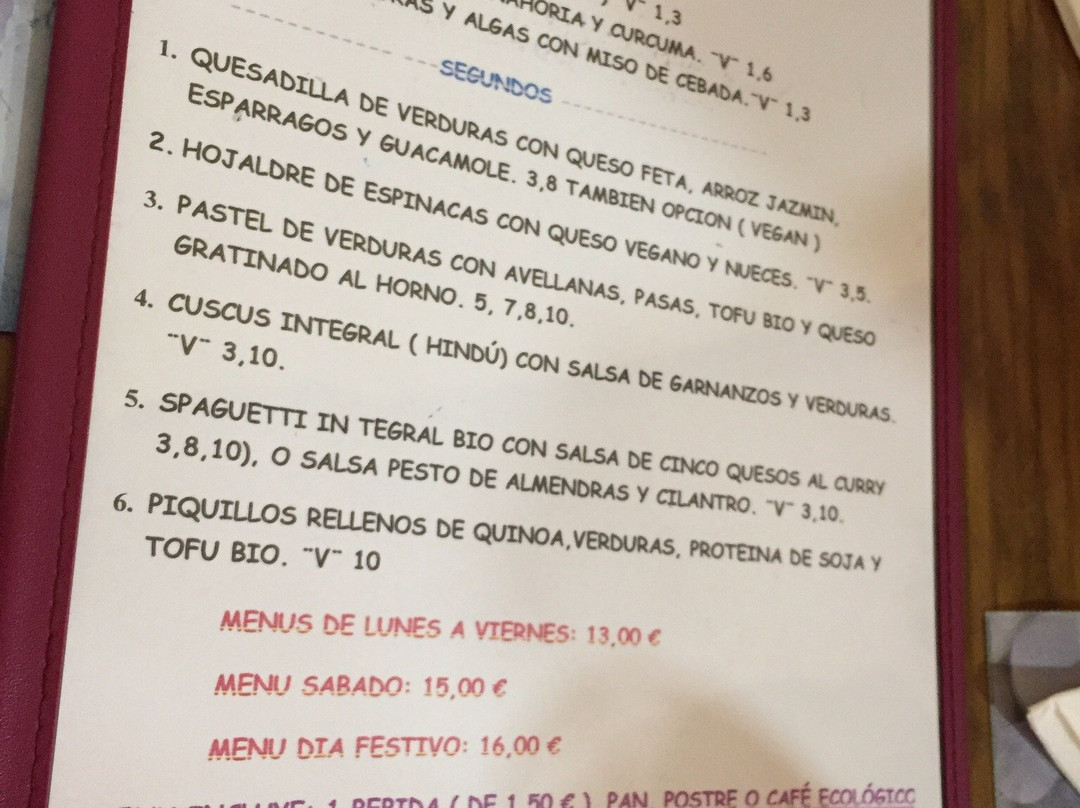 V¨ 1,3
Y CURCUMA. ¨V¨ 1,6
Y ALGAS CON MISO DE CEBADA.¨V¨ 1,3
SEGUNDOS
1. QUESADILLA DE VERDURAS CON QUESO FETA, ARROZ JAZMIN,
ESPARRAGOS Y GUACAMOLE. 3,8 TAMBIEN OPCION ( VEGAN )
2. HOJALDRE DE ESPINACAS CON QUESO VEGANO Y NUECES. ¨V¨ 3,5.
3. PASTEL DE VERDURAS CON AVELLANAS, PASAS, TOFU BIO Y QUESO
GRATINADO AL HORNO. 5, 7,8,10.
4. CUSCUS INTEGRAL ( HINDÚ) CON SALSA DE GARNANZOS Y VERDURAS.
¨V¨ 3,10.
5. SPAGUETTI IN TEGRAL BIO CON SALSA DE CINCO QUESOS AL CURRY
3,8,10), O SALSA PESTO DE ALMENDRAS Y CILANTRO. ¨V¨ 3,10.
6. PIQUILLOS RELLENOS DE QUINOA,VERDURAS, PROTEINA DE SOJA Y
TOFU BIO. ¨V¨ 10
MENUS DE LUNES A VIERNES: 13,00 €
MENU SABADO: 15,00 €
MENU DIA FESTIVO: 16,00 €
1 BEBIDA ( DE 1,50 € ), PAN, POSTRE O CAFÉ ECOLÓGICO